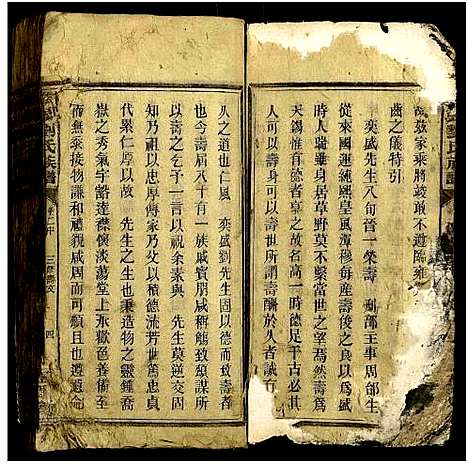 茲家乘將竣敢不遵臨雍
齒之儀特引
奕盛先生八旬晉一榮壽 刑部主事周郁生
從來國運純熙皇風潭穆每産壽俊之良以爲盛
時人瑞雖身居草野莫不繄當世之蒿然壽爲
天錫惟有是德者享之故名高一時德足千古必其
人可以壽世所謂壽不壽於年而壽於久者誠有
久之道也仁風 奕盛劉先生所由以德而致壽者
也今壽屆八十有一族戚賓朋咸稱觴致頌謀所
以壽之乞予一言以祝余素與 先生莫逆交向
知乃祖以忠厚傳家乃父以積德流芳世篤忠貞
代累仁厚以故 先生之生也秉造物之靈鍾喬
嶽之秀氣宇豁達襟懷淡蕩堂上承歡色養備至
而無忝接物謙和禮貌咸周而可願且也遵遺命
劉氏族譜
三
四